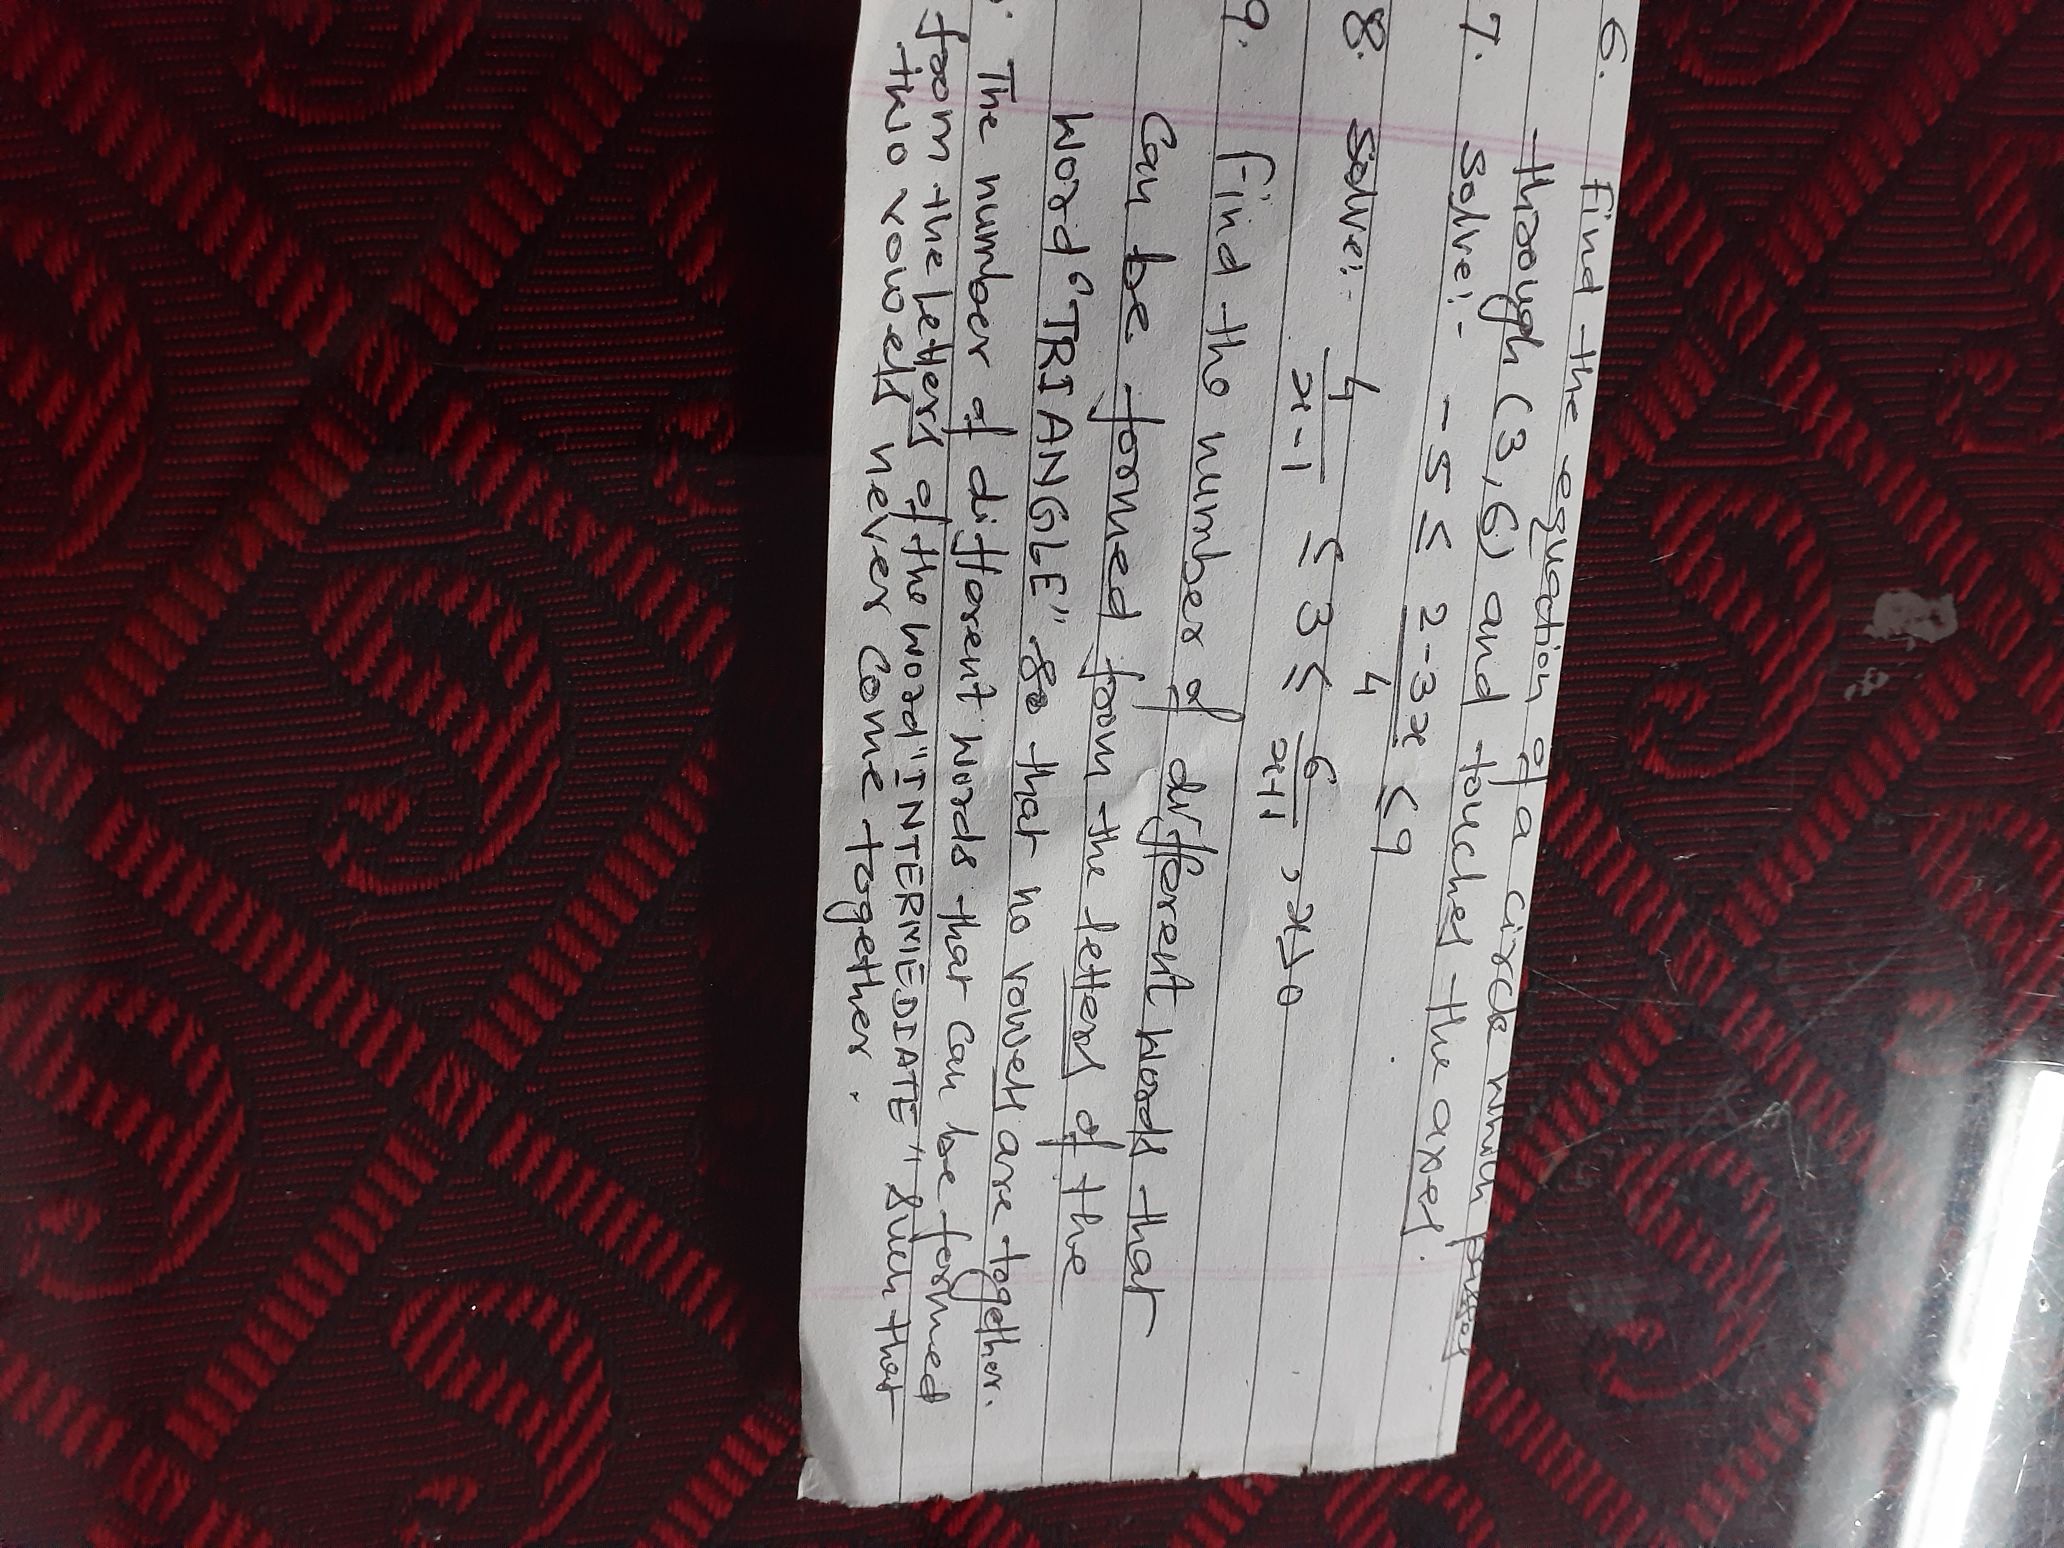 6. Find the equation of a circle which passes
through (3, 6) and touches the axes.
7. Solve:- -5 ≤ 2-3x/4 ≤ 9
8. Solve:- 4/x-1 ≤ 3 ≤ 6/x+1 , x>0
9. Find the number of different words that
Can be formed from the letters of the
word "TRIANGLE" so that no vowels are together.
The number of different words that can be formed
from the letters of the word "INTERMEDIATE" such that
two vowels never come together.